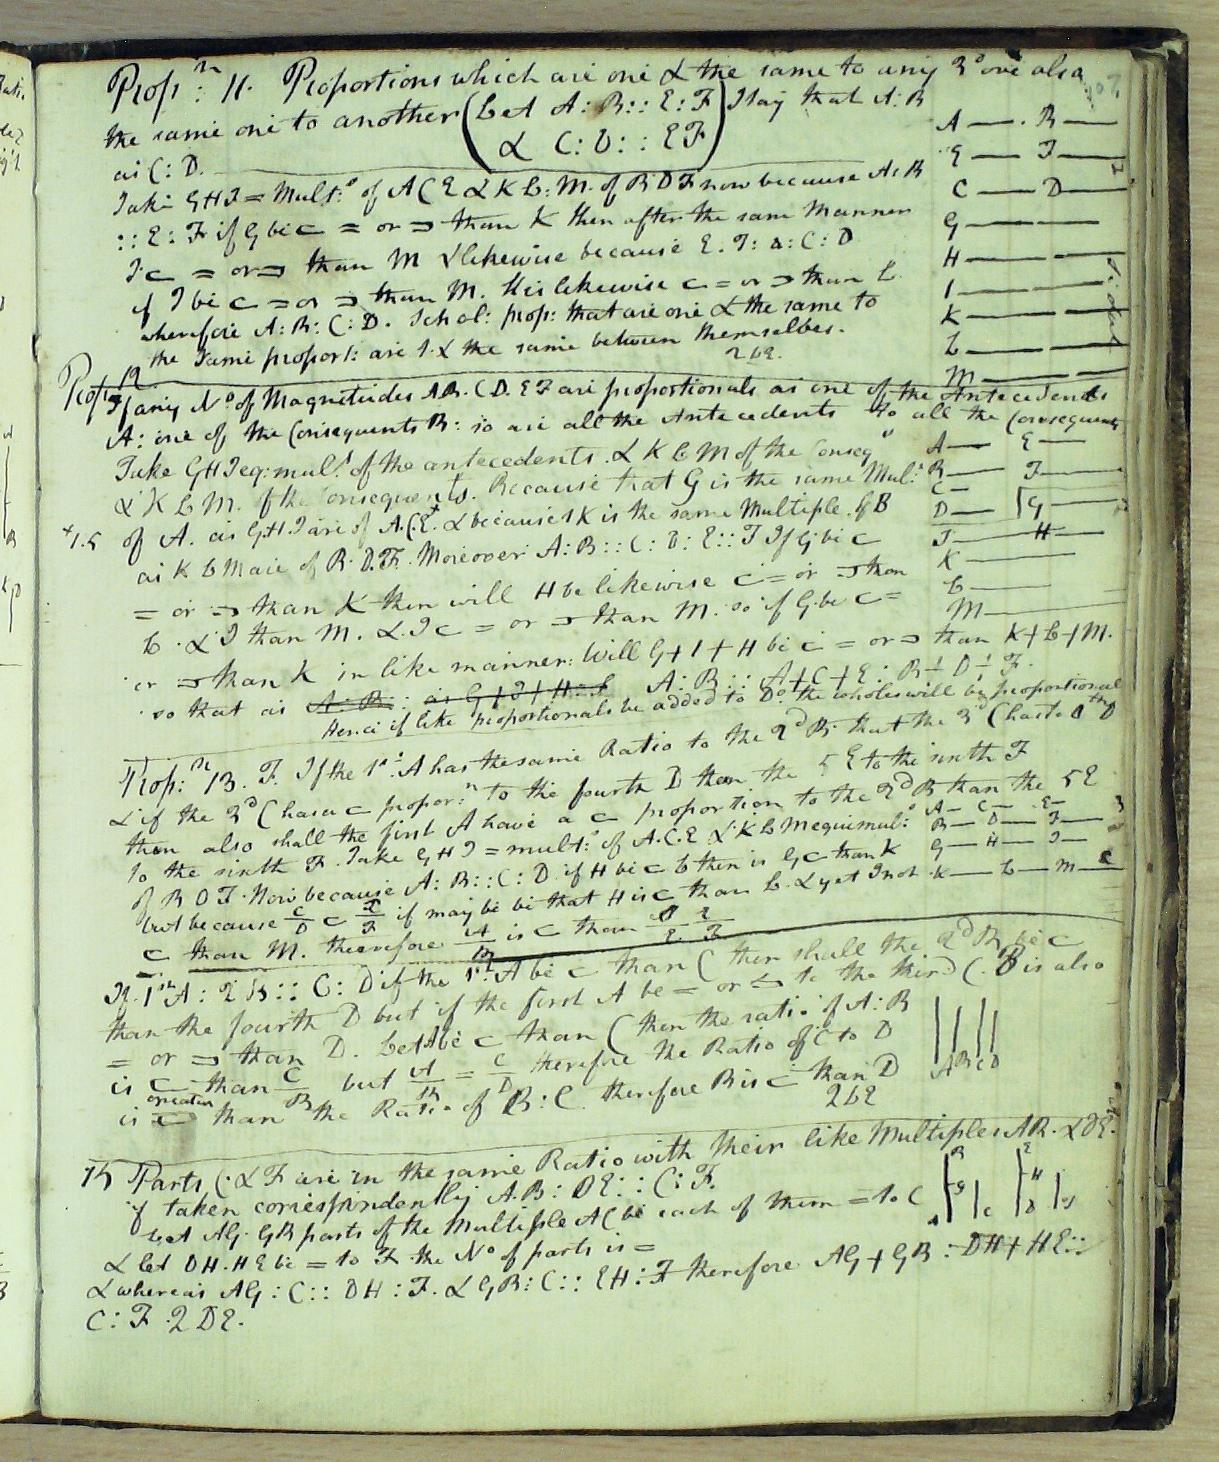 Prop:n 11. Proportions which are one & the same to any 3d one also
the same one to another (Let A:B::E:F) I say that A:B
& C:D::EF
as C:D.
Take GHI = Mult:s of ACE & KLM. of BDF now because A:B
::E:F if G be ⊏ = or ⊐ than K then after the same Manner
I ⊏ = or ⊐ than M & likewise because E.F::C:D
if I be ⊏ = or ⊐ than M. H is likewise ⊏ = or ⊐ than L.
wherefore A:B:C:D. Schol: prop: that are one & the same to
the same proport: are 1 & the same between themselves.
2LE.
A — B —
E — F —
C — D —
G —
H —
I —
K —
L —
M —
Prop: 12 If any No of Magnitudes AB. CD. EF are proportionals as one of the Antecedents
A: one of the Consequents B: so are all the Antecedents to all the Consequents
Take GHI eq: mul:s of the antecedents. & KLM of the Conseq:s
& KLM. of the Consequents. Because that G is the same Mul:
+1.5 of A. as G+H.I are of A.C.E. & because K is the same Multiple of B
as KLM are of B.D.F. Moreover A:B::C:D:E::F If G be ⊏
= or ⊐ than K then will H be likewise ⊏ = or ⊐ than
L. & I than M. & I ⊏ = or ⊐ than M. so if G be ⊏ =
or ⊐ than K in like manner: Will G+I+H be ⊏ = or ⊐ than K+L+M.
so that as A:B:: as G+I+H:: A:B::A+C+E:B+D+F.
Hence if like proportionals be added to Do the wholes will be proportional
A — E —
B — F —
C —
D — G —
I — H —
K —
L —
M —
Prop:n 13. F. If the 1st A has the same Ratio to the 2d B. that the 3d C has to the D
& if the 3d C has a ⊏ propor:n to the fourth D than the 5 E to the sixth F
then also shall the first A have a ⊏ proportion to the 2d B than the 5 E
to the sixth F. Take GHI = mult:s of A.C.E & KLM equimul:s
of BDF. Now because A:B::C:D if H be ⊏ L then is G ⊏ than K
but because C/D ⊏ E/F if may be be that H is ⊏ than L. & yet I not
⊏ than M. therefore A/B is ⊏ than E/F
A — C — E —
B — D — F —
G — H — I —
K — L — M —
If 1st A: 2 B::C:D if the 1st A be ⊏ than C then shall the 2d B be ⊏
than the fourth D but if the first A be = or ⊐ to the third C. B is also
= or ⊐ than D. Let A be ⊏ than C then the ratio of A:B
is ⊏ than C/B but A/B = C/D therefore the Ratio of C to D
is greater than the Ratio of B:C therefore B is ⊏ than D
2LE
A B C D
15 Parts C & F are in the same Ratio with their like Multiples AB. & DE.
if taken correspondently A.B:DE::C:F.
Let AG. GB parts of the Multiple AC be each of them = to C
& let DH.HE be = to F. the No of parts is =
& whereas AG:C::DH:F. & GB:C::EH:F therefore AG+GB:DH+HE::
C:F. 2DE.